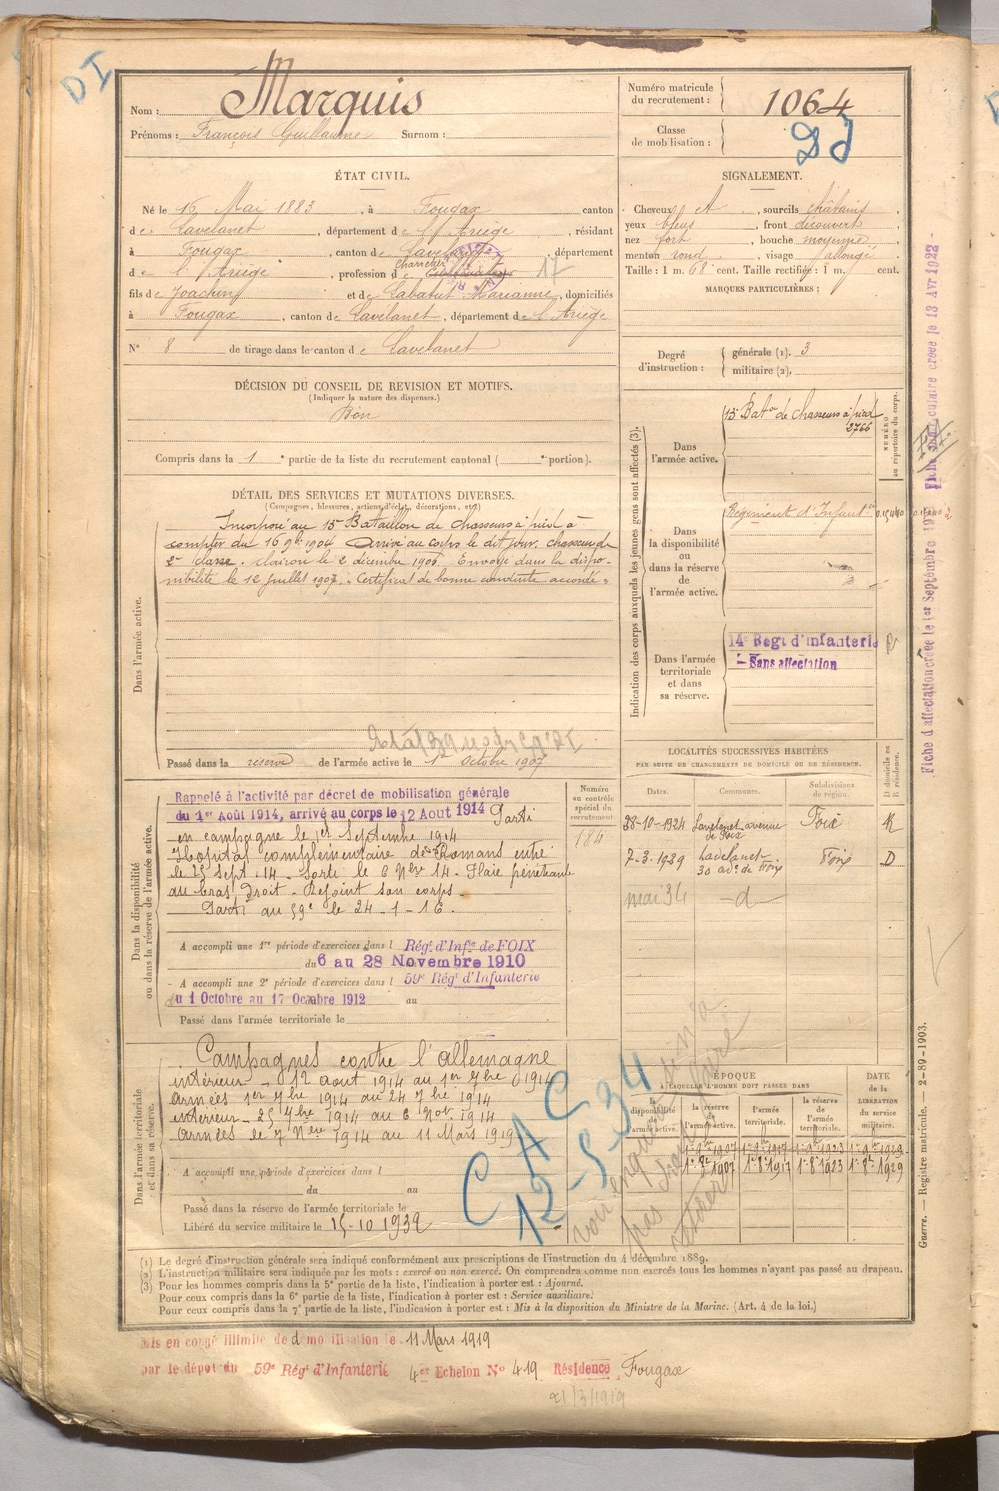 DI
Nom : Marquis
Prénoms : François Guillaume Surnom :
Numéro matricule du recrutement : 1064
Classe de mobilisation :
ÉTAT CIVIL.
Né le 15 Mai 1883, à Fougax canton
de Lavelanet, département de l'Ariège, résidant
à Fougax, canton de Lavelanet, département
de l'Ariège, profession de Charretier 17
fils de Joachim et de Labatut Marianne, domiciliés
à Fougax, canton de Lavelanet, département de l'Ariège
N° 8 de tirage dans le canton de Lavelanet
SIGNALEMENT.
Cheveux et, sourcils châtains,
yeux bleus, front découvert
nez fort, bouche moyenne,
menton rond, visage allongé
Taille : 1 m. 68 cent. Taille rectifiée : 1 m. cent.
MARQUES PARTICULIÈRES :
Degré d'instruction : générale (1). 3
militaire (2).
DÉCISION DU CONSEIL DE REVISION ET MOTIFS.
(Indiquer la nature des dispenses.)
Bon
Compris dans la 1e partie de la liste du recrutement cantonal ( e portion).
DÉTAIL DES SERVICES ET MUTATIONS DIVERSES.
(Campagnes, blessures, actions d'éclat, décorations, etc.)
Dans l'armée active.
Incorporé au 15e Bataillon de chasseurs à pied à
compter du 16 9bre 1904 Arrivé au corps le dit jour. chasseur de
2e classe. Clairon le 2 décembre 1906. Envoyé dans la dispo-
nibilité le 12 juillet 1907. Certificat de bonne conduite accordé.
Passé dans la réserve de l'armée active le 1er Octobre 1907
Indication des corps auxquels les jeunes gens sont affectés (3).
Dans l'armée active.
15e Baton de Chasseurs à pied
2766
NUMÉRO au répertoire du corps.
Dans la disponibilité ou dans la réserve de l'armée active.
Régiment d'Infanterie
Dans l'armée territoriale et dans sa réserve.
14e Régt d'Infanterie
Sans affectation
Fiche d'affectation créée le 1er Septembre
Fiche matriculaire créée le 13 Avr 1922
LOCALITÉS SUCCESSIVES HABITÉES
PAR SUITE DE CHANGEMENTS DE DOMICILE OU DE RÉSIDENCE.
Dates. Communes. Subdivisions de région. D domicile ou R résidence.
28-10-1924 Lavelanet avenue de Foix Foix R
7-3-1929 Lavelanet 30 ave de Foix Foix D
mai 34 -d-
Dans la disponibilité ou dans la réserve de l'armée active.
Numéro au contrôle spécial du recrutement
184
Rappelé à l'activité par décret de mobilisation générale
du 1er Août 1914, arrivé au corps le 12 Aout 1914 Parti
en campagne le 1er Septembre 1914
Hopital complémentaire de Romans entré
le 25 Sept. 14 - Sorti le 6 Nbre 14 - Plaie pénétrante
au bras droit - Rejoint son corps.
Parti au 59e le 24-1-16.
A accompli une 1re période d'exercices dans l Régt d'Infie de FOIX
du 6 au 28 Novembre 1910
A accompli une 2e période d'exercices dans l 59e Régt d'Infanterie
du 1 Octobre au 17 Octobre 1912 au
Passé dans l'armée territoriale le
Dans l'armée territoriale et dans sa réserve.
Campagnes contre l'allemagne
intérieur - 12 aout 1914 au 1er 7bre 1914
Armées 1er 7bre 1914 au 24 7bre 1914
intérieur - 25 7bre 1914 au 6 Nov. 1914
Armées le 7 Nov 1914 au 11 Mars 1919
A accompli une période d'exercices dans l
du au
Passé dans la réserve de l'armée territoriale le
Libéré du service militaire le 15-10-1932
CAC
12-5-34
ÉPOQUE
A LAQUELLE L'HOMME DOIT PASSER DANS
DATE de la LIBÉRATION du service militaire.
la disponibilité de l'armée active. la réserve de l'armée active. l'armée territoriale. la réserve de l'armée territoriale.
1er 8bre 1907 1er 8bre 1917 1er 8bre 1923 1er 8bre 1929
Guerre. — Registre matricule. — 2-89-1903.
(1) Le degré d'instruction générale sera indiqué conformément aux prescriptions de l'instruction du 4 décembre 1889.
(2) L'instruction militaire sera indiquée par les mots : exercé ou non exercé. On comprendra comme non exercés tous les hommes n'ayant pas passé au drapeau.
(3) Pour les hommes compris dans la 5e partie de la liste, l'indication à porter est : Ajourné.
Pour ceux compris dans la 6e partie de la liste, l'indication à porter est : Service auxiliaire.
Pour ceux compris dans la 7e partie de la liste, l'indication à porter est : Mis à la disposition du Ministre de la Marine. (Art. 4 de la loi.)
Mis en congé illimité de démobilisation le 11 Mars 1919
par le dépôt du 59e Régt d'Infanterie 4er Echelon N° 419 Résidence Fougax
21/3/1919